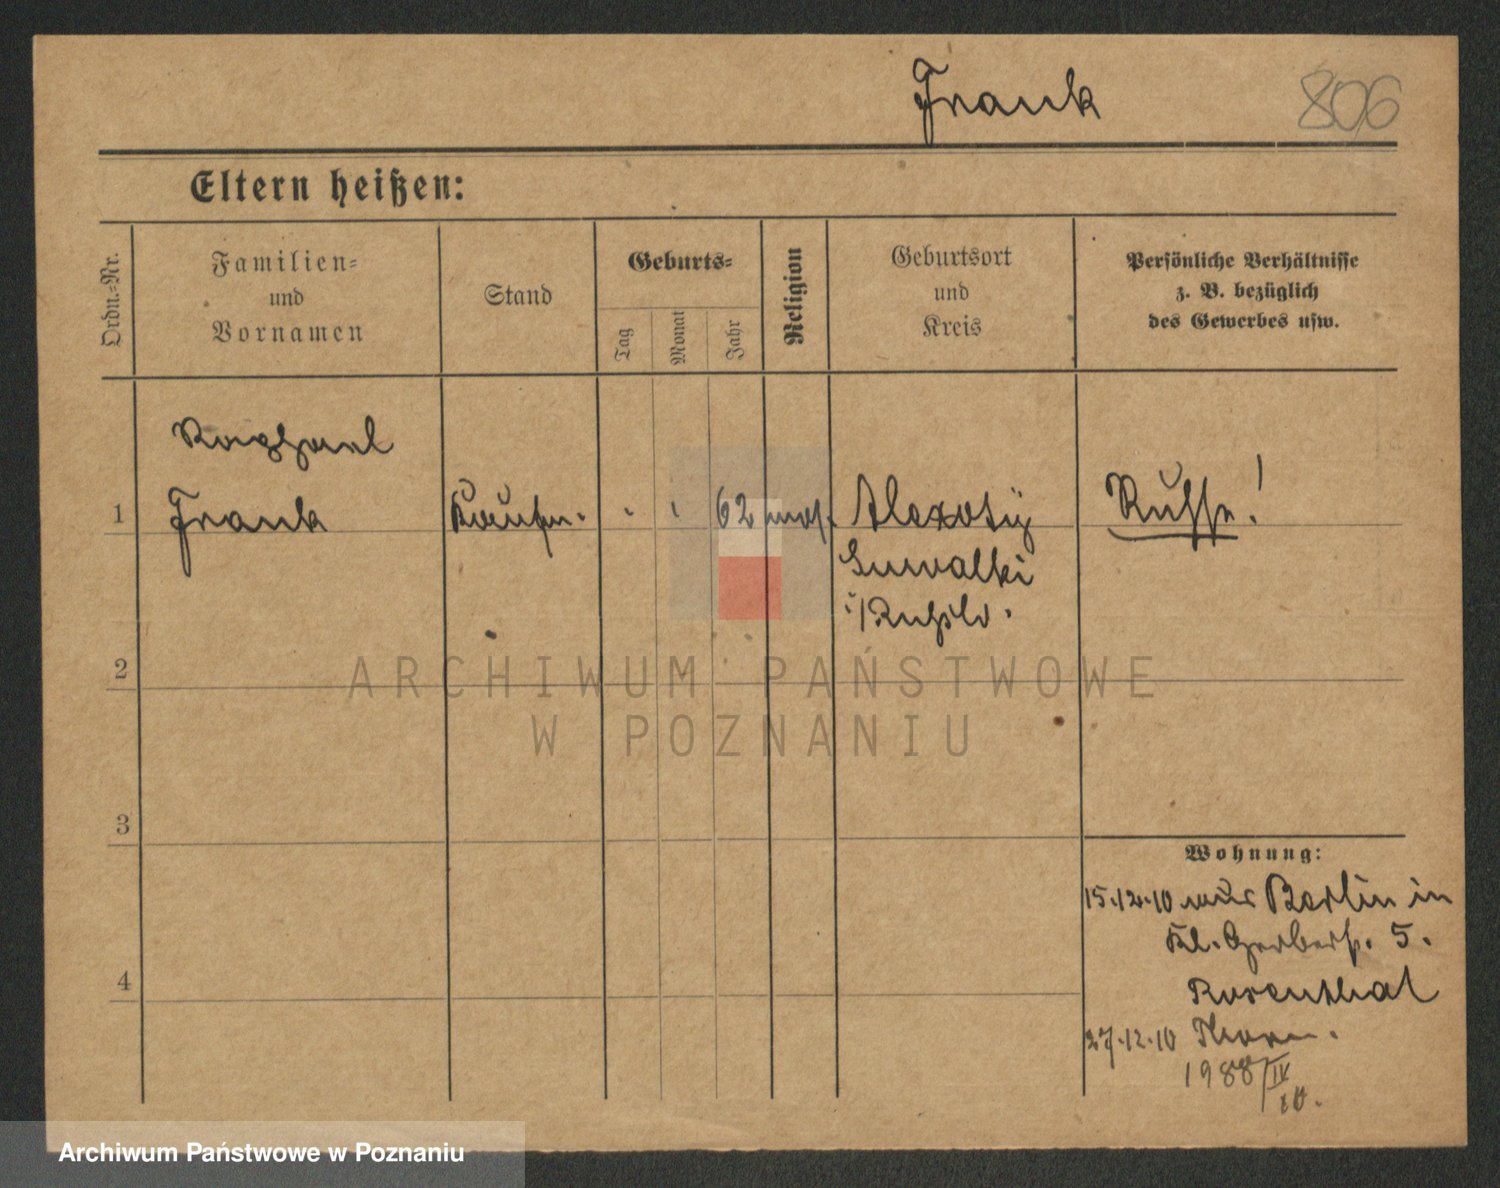 Frank
806
Eltern heißen:
Ordn.-Nr.
Familien-
und
Vornamen
Stand
Geburts-
Tag
Monat
Jahr
Religion
Geburtsort
und
Kreis
Persönliche Verhältnisse
z. B. bezüglich
des Gewerbes usw.
Raphael
1 Frank Kaufm. 62 mos. Alexoty Russe!
Suwalki
i/Rußld.
2
3
4
Wohnung:
15.12.10 aus Berlin in
Kl. Gerberstr. 5.
Rosenthal
27.12.10 Thorn.
1988/IV
10.
ARCHIWUM PAŃSTWOWE
W POZNANIU
Archiwum Państwowe w Poznaniu